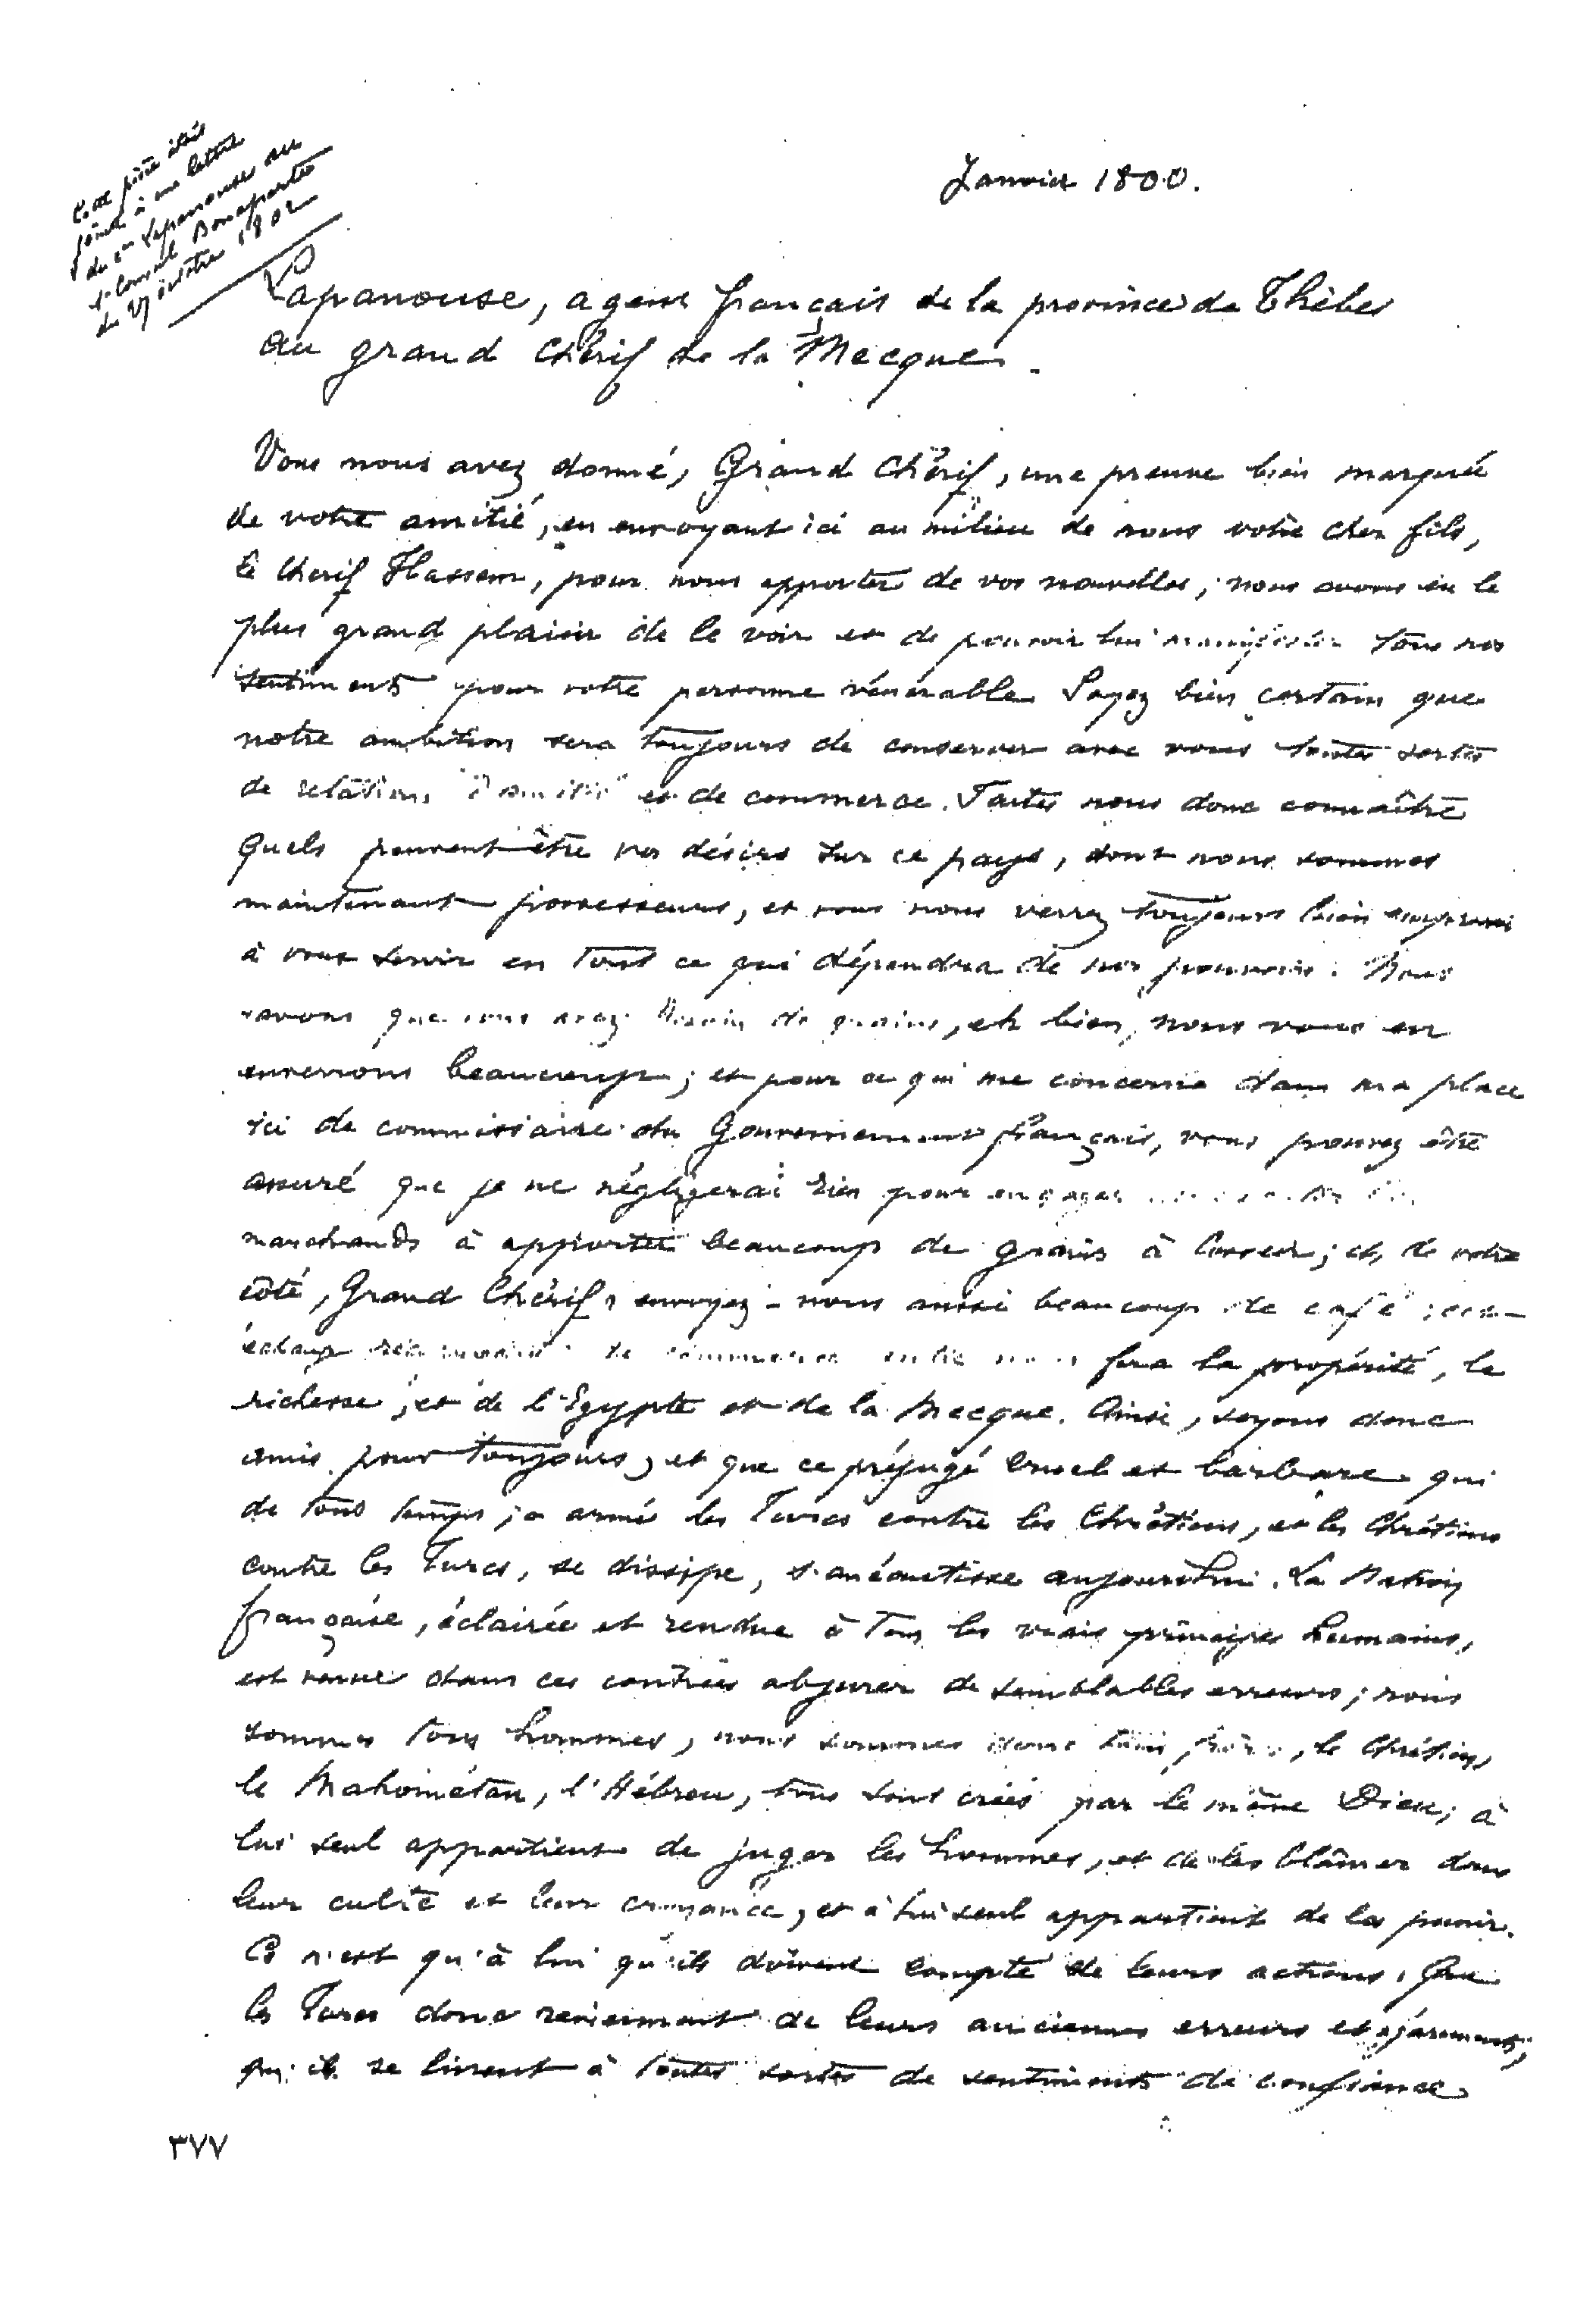 Cette pièce était
jointe à une lettre
du Cen Lapanouse au
1er Consul Bonaparte
du 27 octobre 1802
Janvier 1800.
Lapanouse, agent français de la province de Thèbes
au grand Chérif de la Mecque.
Vous nous avez donné, Grand Chérif, une preuve bien marquée
de votre amitié, en envoyant ici au milieu de nous votre cher fils,
le Chérif Hassem, pour nous apporter de vos nouvelles; nous avons eu le
plus grand plaisir de le voir et de pouvoir lui manifester tous nos
sentiments pour votre personne vénérable. Soyez bien certain que
notre ambition sera toujours de conserver avec vous toutes sortes
de relations d'amitié et de commerce. Faites nous donc connaître
quels peuvent être vos désirs sur ce pays, dont nous sommes
maintenant possesseurs, et vous nous verrez toujours bien empressé
à vous servir en tout ce qui dépendra de nos pouvoirs. Nous
savons que vous avez besoin de grains, eh bien, nous vous en
enverrons beaucoup; et pour ce qui me concerne dans ma place
ici de commissaire du Gouvernement français, vous pouvez être
assuré que je ne négligerai rien pour engager
marchands à apporter beaucoup de grains à Cosseir; et, de votre
côté, Grand Chérif, envoyez-nous aussi beaucoup de café; cet
échange de commerce entre nous fera la propérité, la
richesse, et de l'Egypte et de la Mecque. Ainsi, soyons donc
amis pour toujours, et que ce préjugé cruel et barbare qui
de tous temps, a armé les Turcs contre les Chrétiens, et les Chrétiens
contre les Turcs, se dissipe, s'anéantisse aujourd'hui. La Nation
française, éclairée et rendue à tous les vrais principes humains,
est venue dans ces contrées abjurer de semblables erreurs; nous
sommes tous hommes, nous sommes donc tous frères, le Chrétien,
le Mahométan, l'Hébreu, tous sont créés par le même Dieu; à
lui seul appartient de juger les hommes, et de les blâmer dans
leur culte et leur croyance, et à lui seul appartient de les punir.
Ce n'est qu'à lui qu'ils doivent compte de leurs actions. Que
les Turcs donc reviennent de leurs anciennes erreurs et égarements;
qu'ils se livrent à toutes sortes de sentiments de confiance
٣٧٧